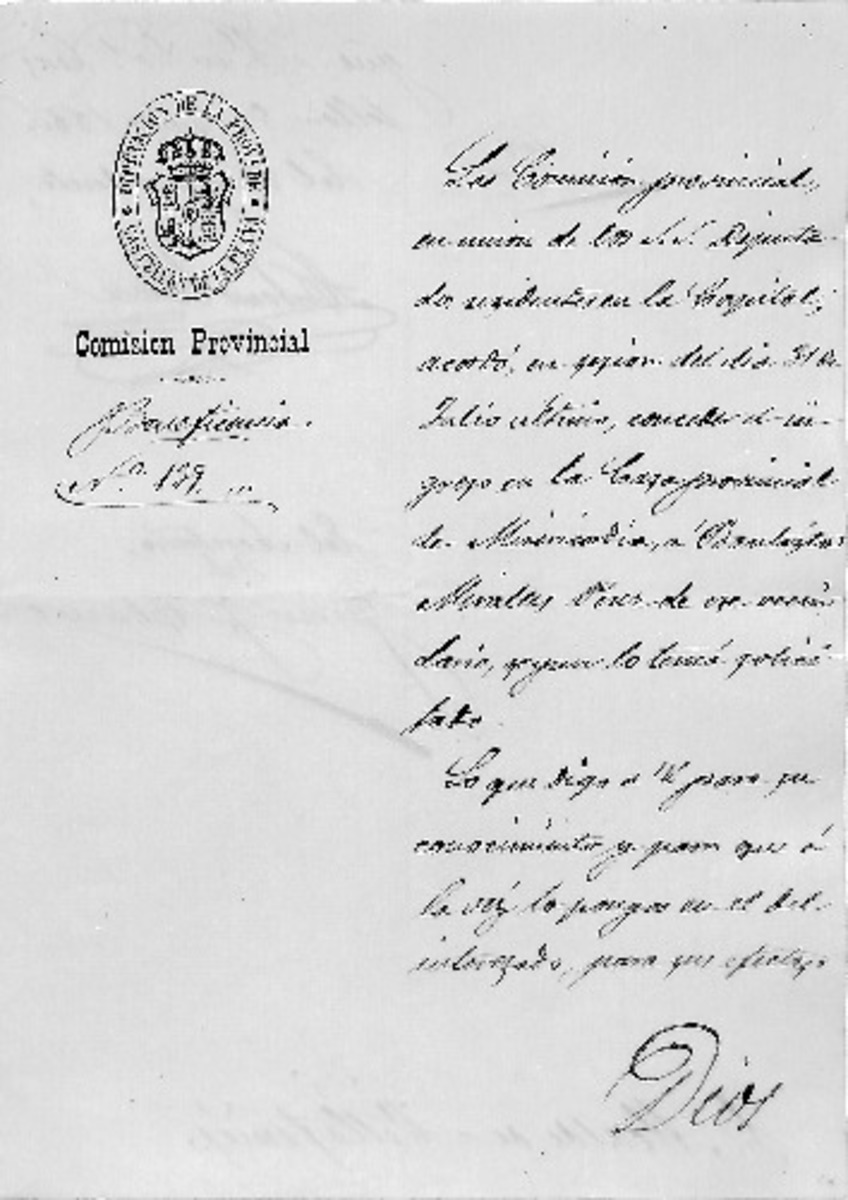 DIPUTACION DE LA PROVA. DE
CASTELLON DE LA PLANA
Comision Provincial
Beneficencia.
N.º 139.
La Comision provincial,
en union de los S.S. Diputa-
dos residentes en la Capital,
acordó, en sesion del dia 31 de
Julio último, conceder el in-
greso en la Casa provincial
de Misericordia, á
Miralles de ese vecin-
dario, segun lo tenia solici-
tado.
Lo que digo a V. para su
conocimiento y para que á
la vez lo ponga en el del
interesado, para que
Dios